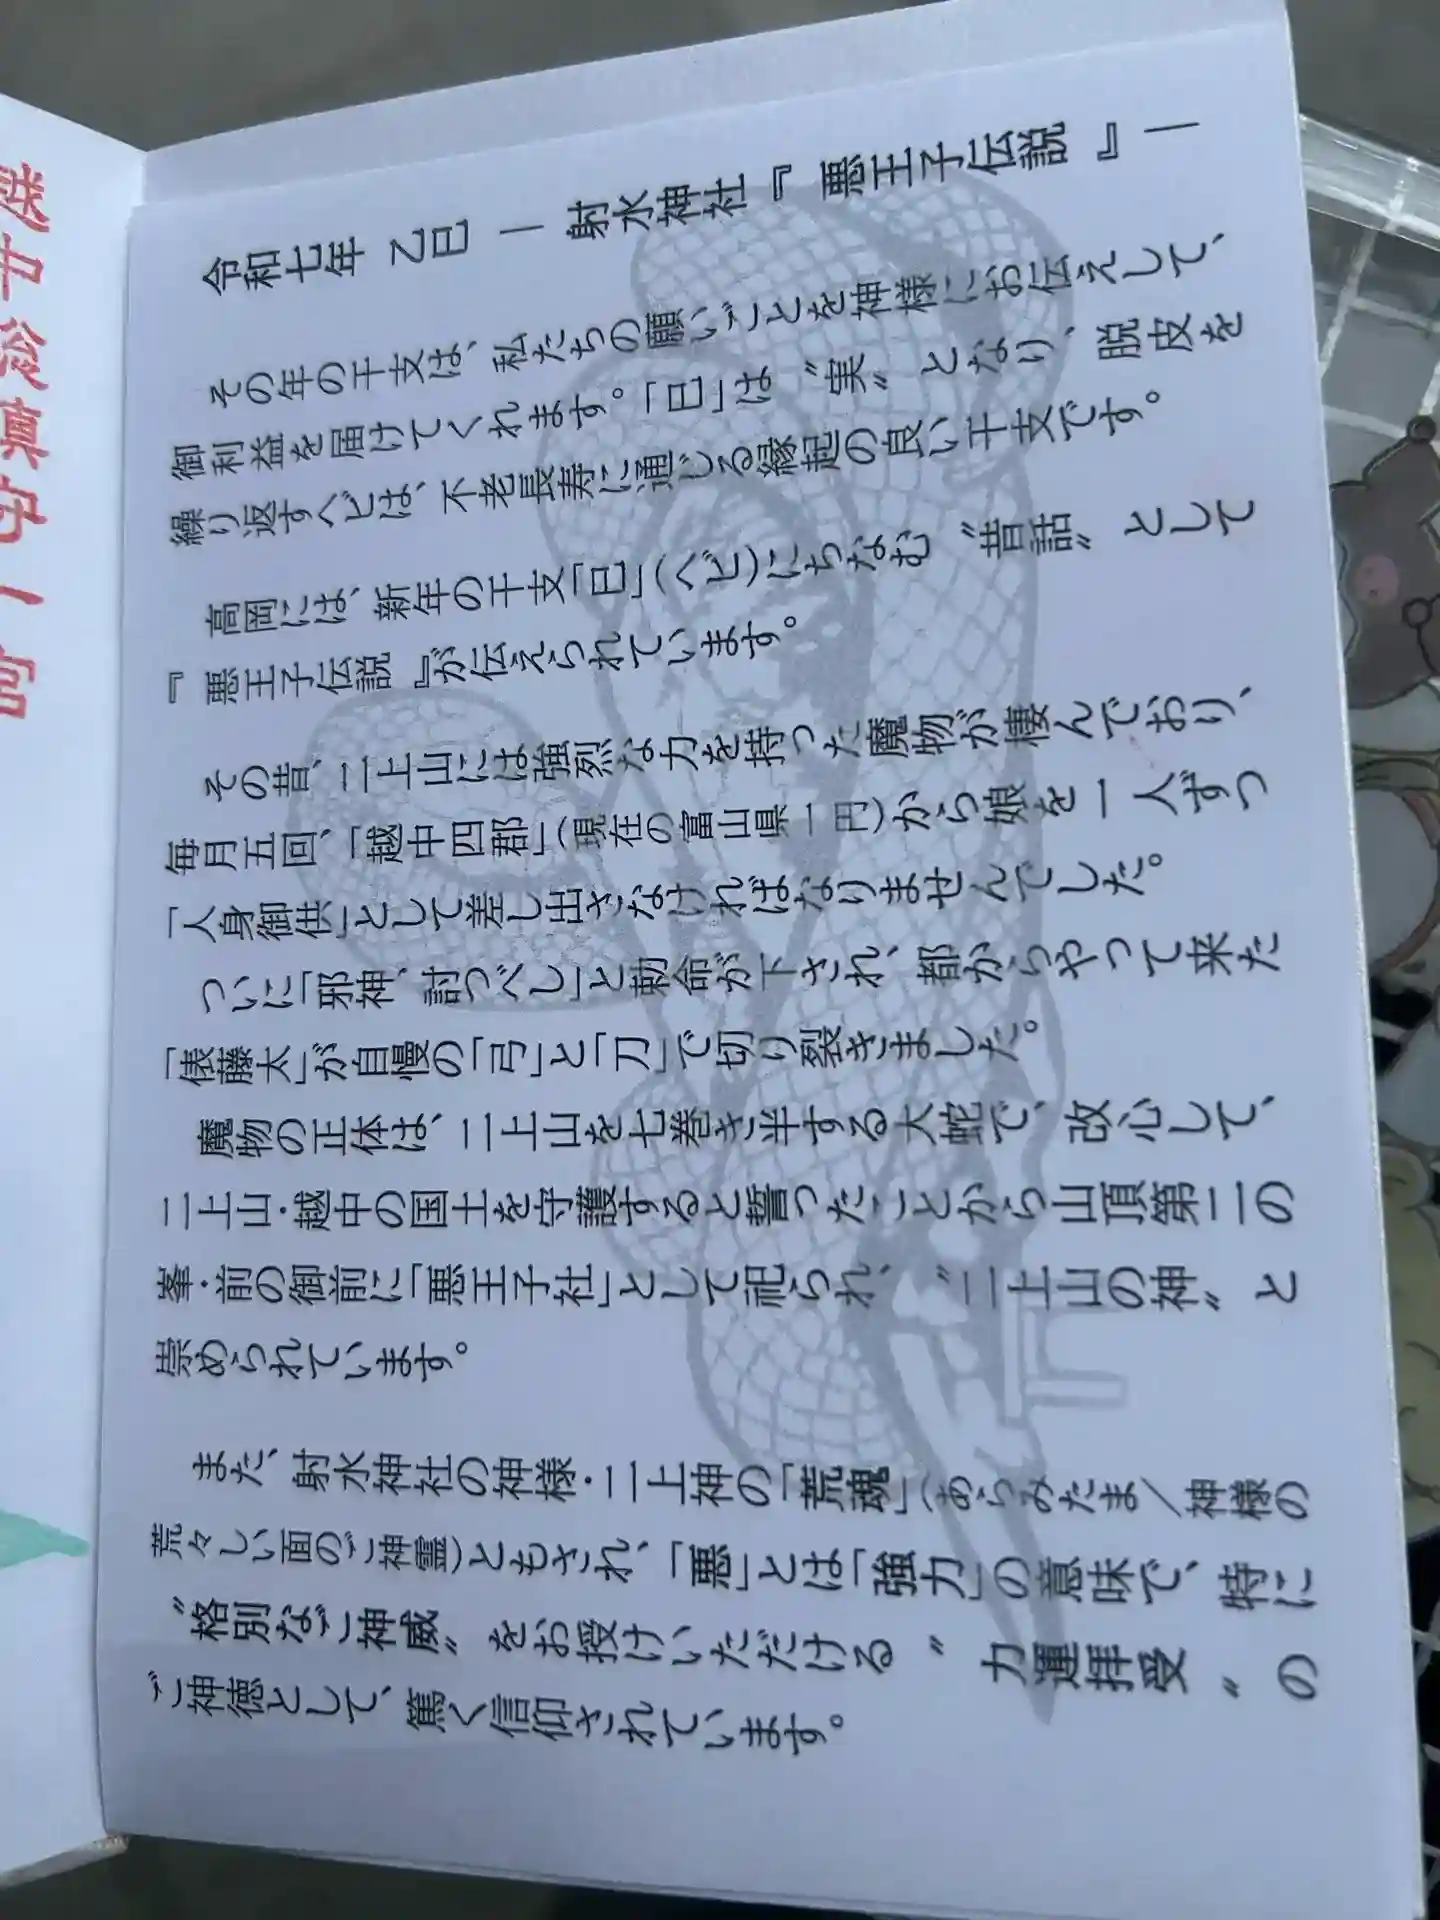 令和七年 乙巳 ― 射水神社『悪王子伝説』―
その年の干支は、私たちの願いごとを神様にお伝えして、
御利益を届けてくれます。「巳」は〝実〟となり、脱皮を
繰り返すヘビは、不老長寿に通じる縁起の良い干支です。
高岡には、新年の干支「巳」(ヘビ)にちなむ〝昔話〟として
『悪王子伝説』が伝えられています。
その昔、二上山には強烈な力を持った魔物が棲んでおり、
毎月五回、「越中四郡」(現在の富山県一円)から娘を一人ずつ
「人身御供」として差し出さなければなりませんでした。
ついに「邪神、討つべし」と勅命が下され、都からやって来た
「俵藤太」が自慢の「弓」と「刀」で切り裂きました。
魔物の正体は、二上山を七巻き半する大蛇で、改心して、
二上山・越中の国土を守護すると誓ったことから山頂第二の
峯・前の御前に「悪王子社」として祀られ、〝二上山の神〟と
崇められています。
また、射水神社の神様・二上神の「荒魂」(あらみたま/神様の
荒々しい面のご神霊)ともされ、「悪」とは「強力」の意味で、特に
〝格別なご神威〟をお授けいただける〝力運拝受〟の
ご神徳として、篤く信仰されています。